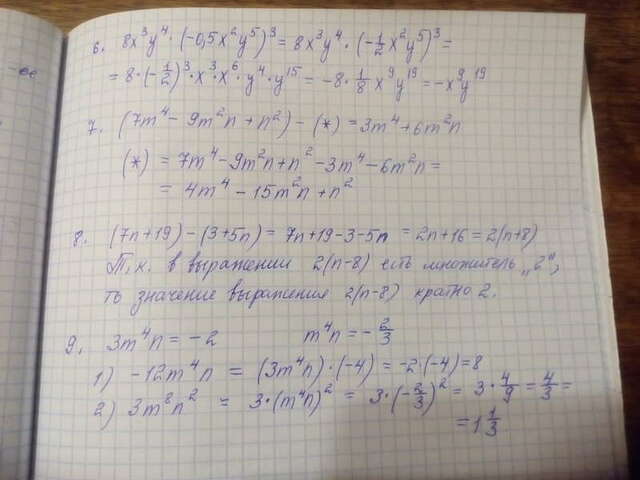 6. 8x³y⁴ · (-0,5x²y⁵)³ = 8x³y⁴ · (-1/2 x²y⁵)³ =
= 8 · (-1/2)³ · x³ · x⁶ · y⁴ · y¹⁵ = -8 · 1/8 x⁹y¹⁹ = -x⁹y¹⁹
7. (7m⁴ - 9m²n + n²) - (*) = 3m⁴ + 6m²n
(*) = 7m⁴ - 9m²n + n² - 3m⁴ - 6m²n =
= 4m⁴ - 15m²n + n²
8. (7n+19) - (3+5n) = 7n+19-3-5n = 2n+16 = 2(n+8)
Т.к. в выражении 2(n-8) есть множитель „2",
то значение выражения 2(n-8) кратно 2.
9. 3m⁴n = -2 m⁴n = -2/3
1) -12m⁴n = (3m⁴n) · (-4) = -2 · (-4) = 8
2) 3m⁸n² = 3 · (m⁴n)² = 3 · (-2/3)² = 3 · 4/9 = 4/3 =
= 1 1/3